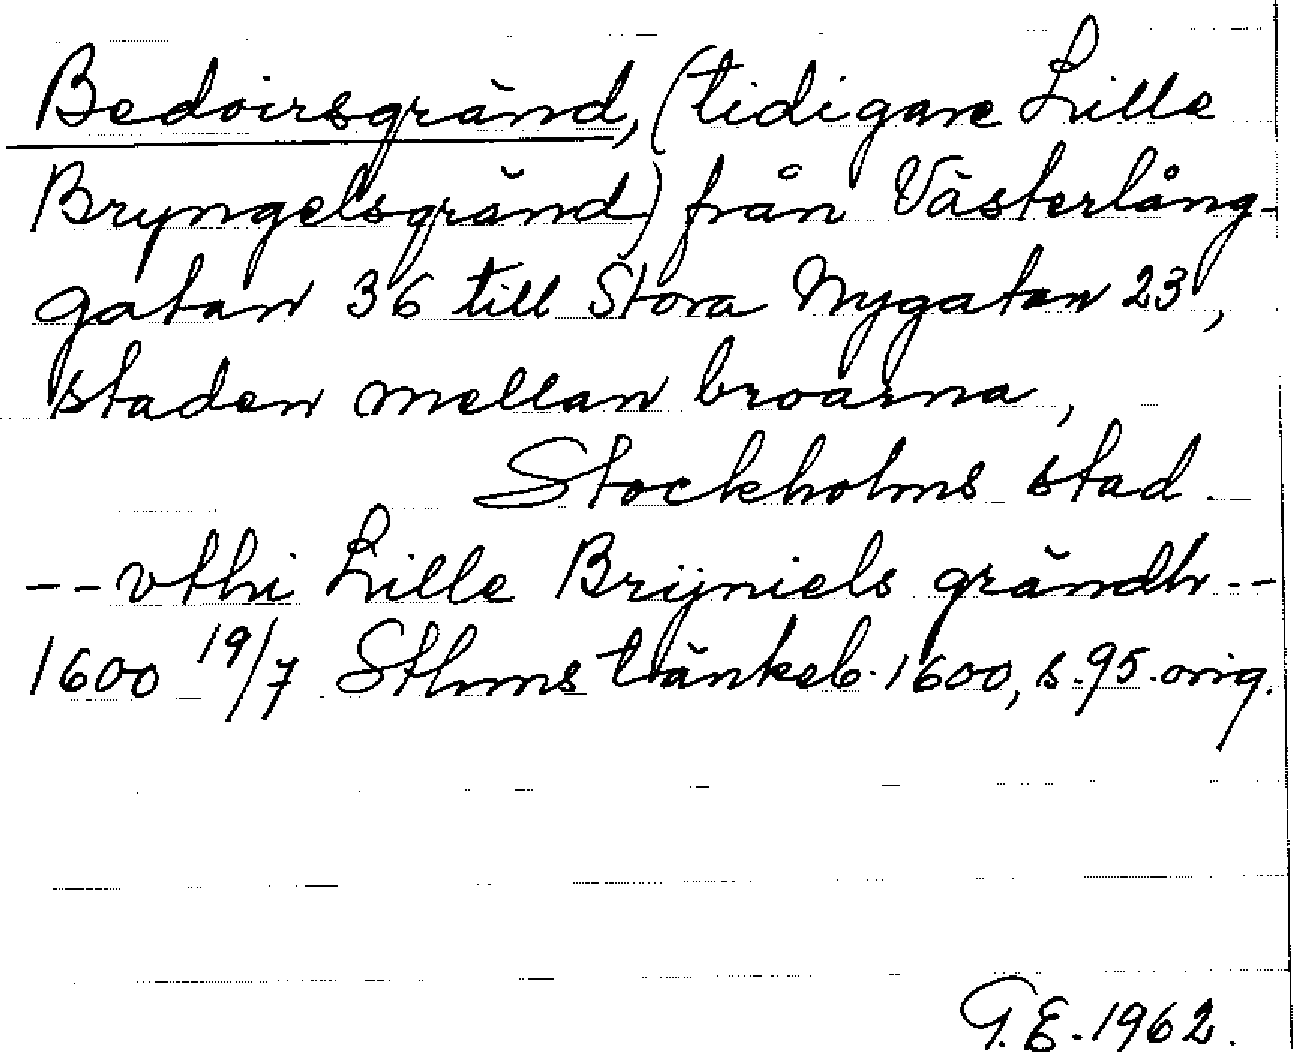 Bedoirsgränd, (tidigare Lille
Bryngelsgränd) från Västerlång-
gatan 36 till Stora Nygatan 23,
staden mellan broarna,
Stockholms stad
-- vthi Lille Brijniels grändh --
1600 19/7 Sthms tänkeb. 1600, s. 95. orig.
G.E. 1962.